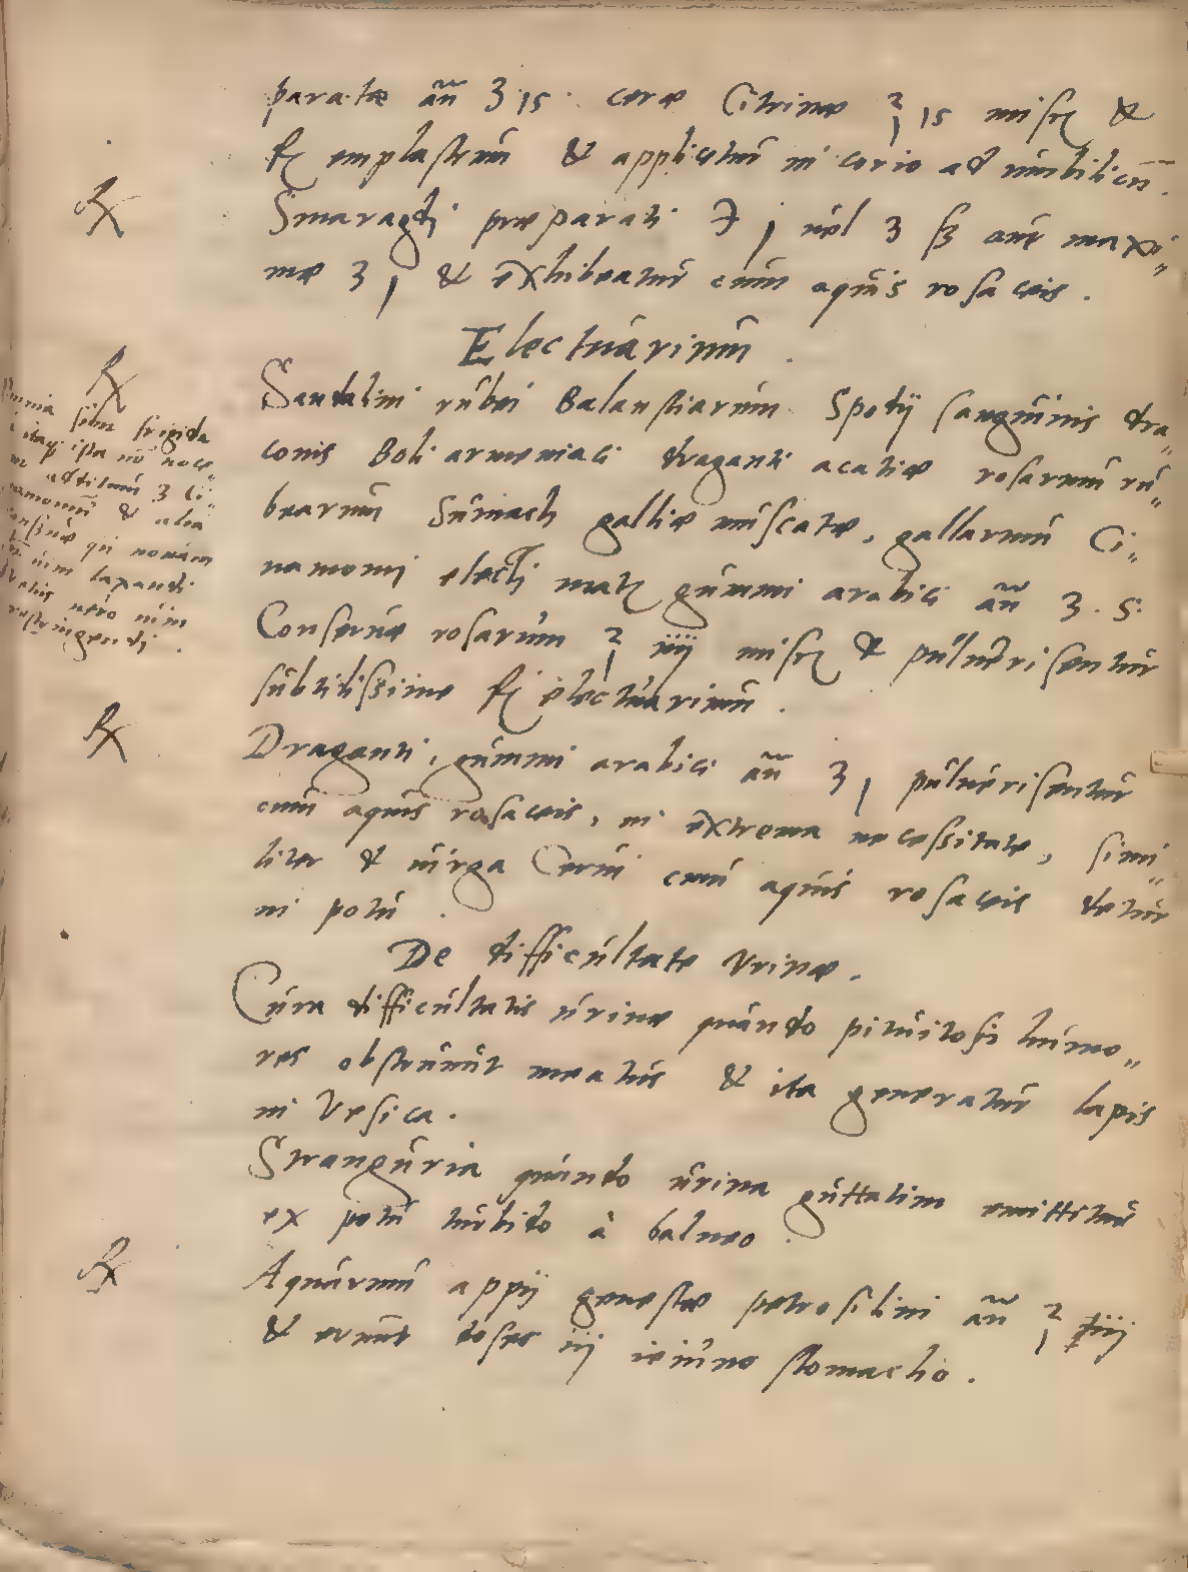 paratæ añ ʒ is. ceræ Citrinæ ℥ is misc &
f emplastrum & applicetur in corio ad umbilicū.
℞ Smaragdi præparati ℈ j uel ʒ ß aut maxi„
mæ ʒ j & exhibeatur cum aquis rosaceis.
Electuarium.
℞ Sandalini rubei Balaustiarum Spodij sanguinis dra„
conis Boli armeniaci draganti acatiæ rosarum ru„
bearum Sumach galliæ muscatæ, gallarum Ci„
namomi electi gummi arabici añ ʒ. s.
Conseruæ rosarum ℥ iiij misc & puluerisentur
subtilissime f electuarium.
omnia sūt frigida
itaq ista nō noce„
additum ʒ Ci„
namomū & alia
nouam
uim laxandi
uero uim
restringendi.
℞ Draganti, gummi arabici añ ʒ j puluerisentur
cum aquis rosaceis, in extrema necessitate, simi„
liter & uirga Cerui cum aquis rosaceis detur
in potu.
De difficultate Vrinæ.
Cura difficultatis urinæ quando pituitosi humo„
res obstruunt meatus & ita generatur lapis
in Vesica.
Stranguria quando urina guttatim emittitur
ex potu turbido à balneo.
℞ Aquarum appij genestæ petrosilini añ ℥ iiij
& erunt doses iij ieiuno stomacho.